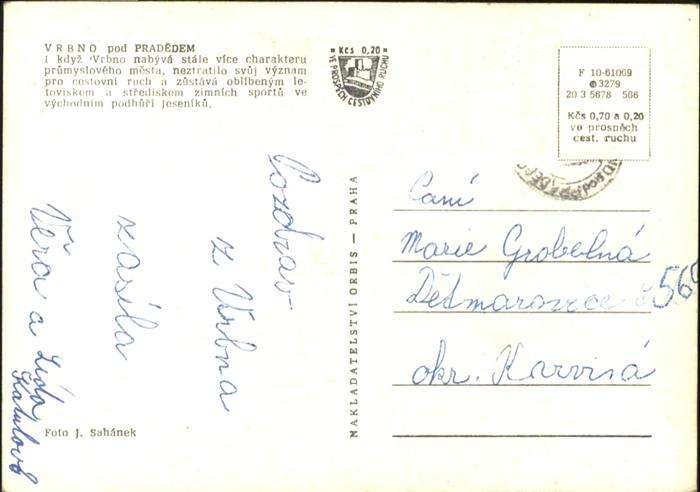 VRBNO pod PRADĚDEM
I když Vrbno nabývá stále více charakteru
průmyslového města, neztratilo svůj význam
pro cestovní ruch a zůstává oblíbeným le-
toviskem a střediskem zimních sportů ve
východním podhůří Jeseníků.
Kčs 0,20
VE PROSPĚCH CESTOVNÍHO RUCHU
F 10-61009
©3279
20 3 5678 566
Kčs 0,70 a 0,20
ve prospěch
cest. ruchu
Pozdrav
z Vrbna
zasílá
Věra a Lída
NAKLADATELSTVÍ ORBIS — PRAHA
Paní
Marie Grobelná
Dětmarovice č 560
okr. Karviná
Foto J. Sahánek